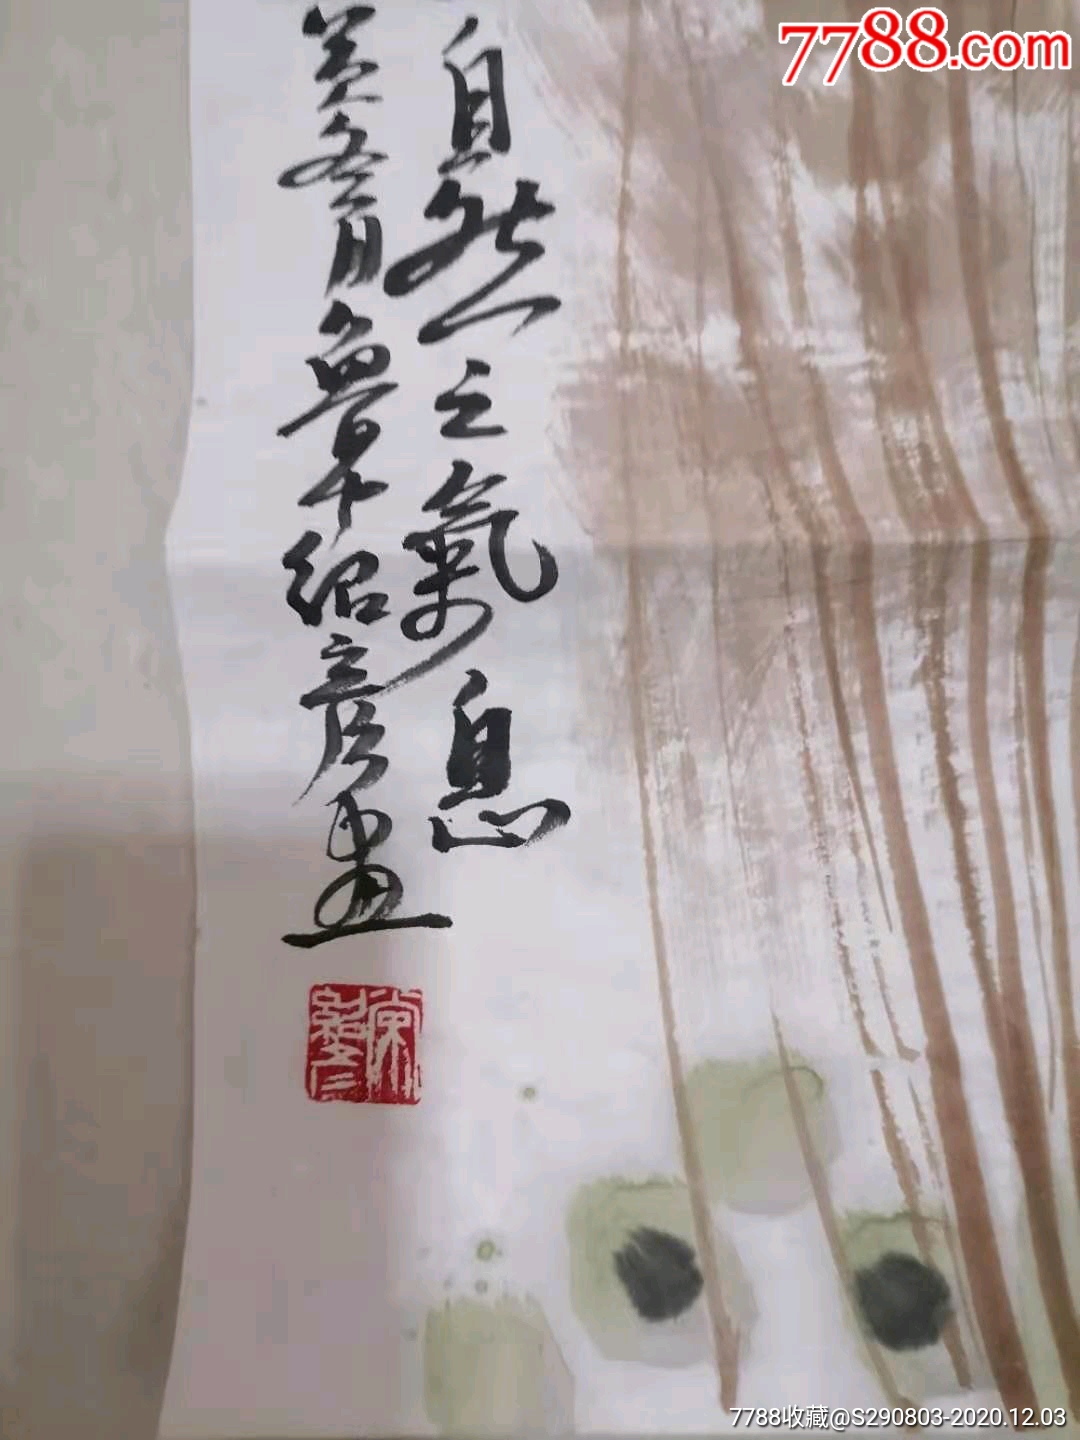 7788.com
自然之氣息
癸冬月魯中紹彥画
7788收藏@S290803-2020.12.03